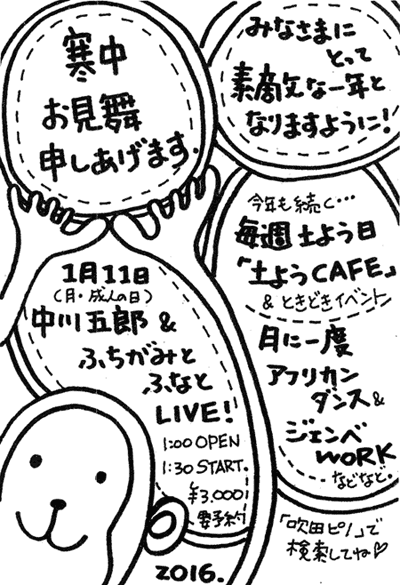 寒中
お見舞
申しあげます.
みなさまに
とって
素敵な一年と
なりますように!
今年も続く…
毎週土よう日
「土ようCAFE」
& ときどきイベント
月に一度
アフリカン
ダンス&
ジェンベ
WORK
などなど。
「吹田ピノ」で
検索してね♡
1月11日
(月・成人の日)
中川五郎 &
ふちがみと
ふなと
LIVE!
1:00 OPEN
1:30 START.
¥3,000
要予約
2016.